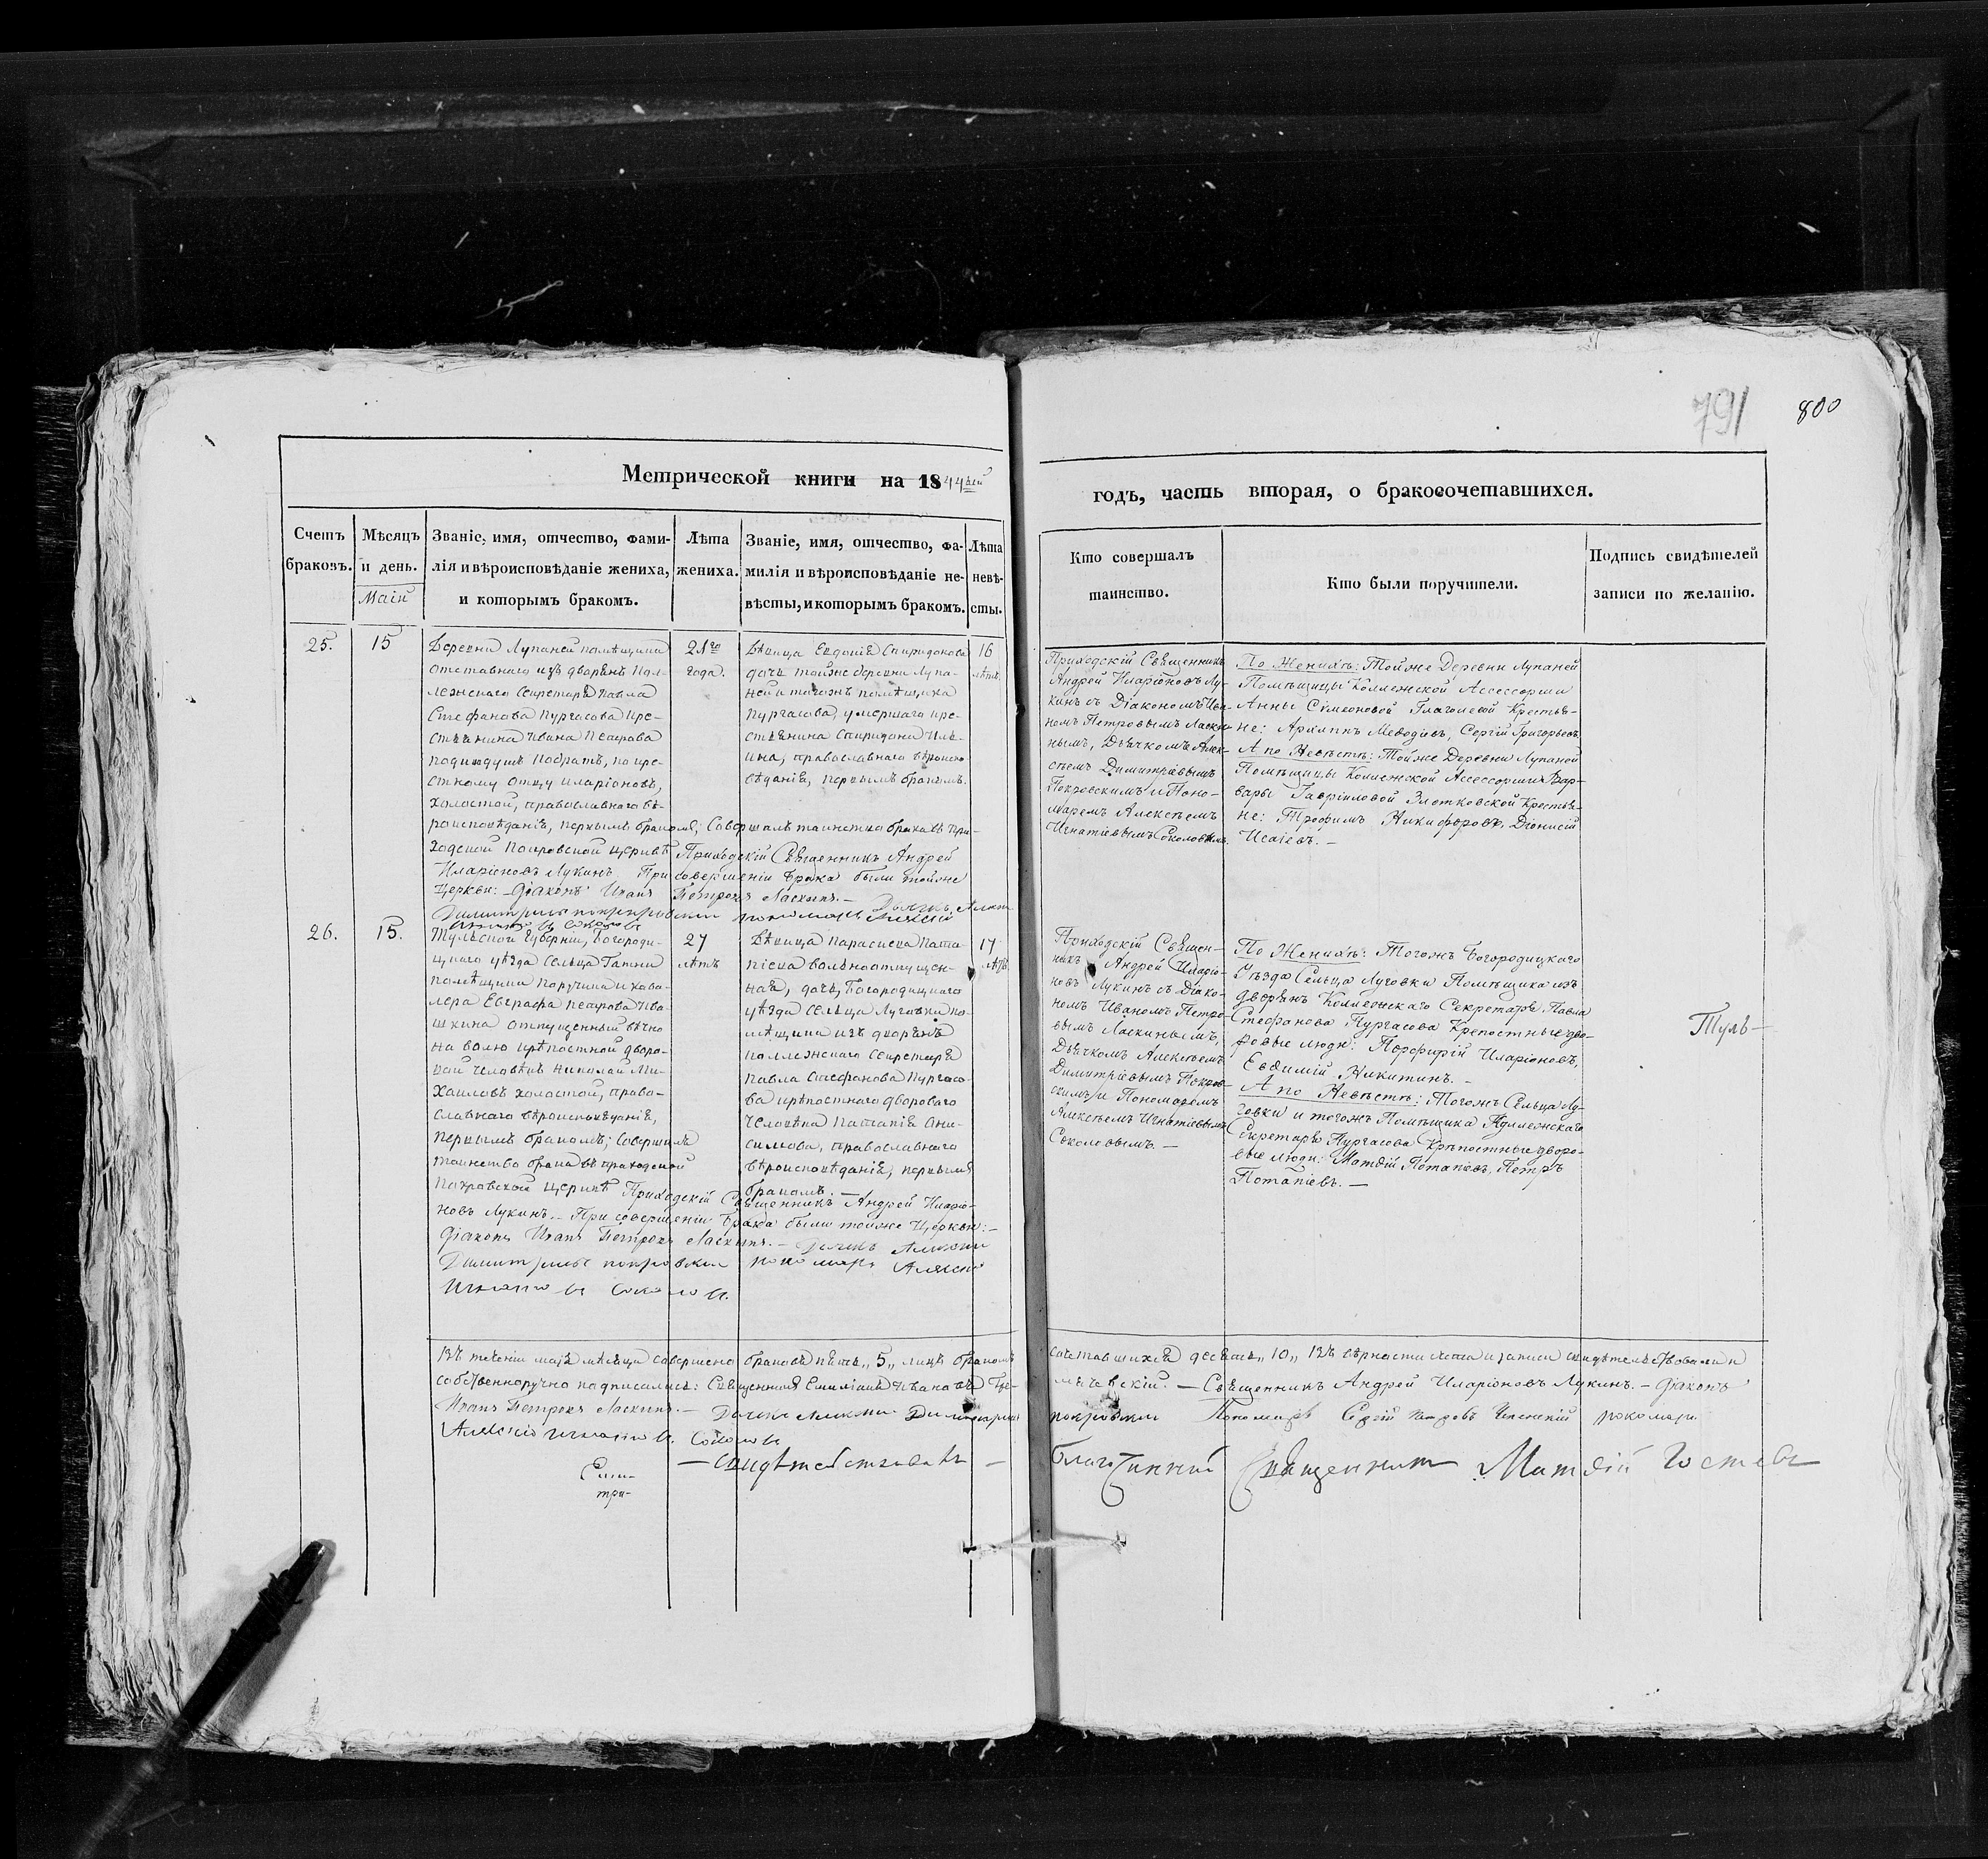 791 800
Метрической книги на 1844
годъ, часть вторая, о бракосочетавшихся.
Счетъ
браковъ.
Мѣсяцъ
и день.
Маій
Званіе, имя, отчество, фами-
лія и вѣроисповѣданіе жениха,
и которымъ бракомъ.
Лѣта
жениха.
Званіе, имя, отчество, фа-
милія и вѣроисповѣданіе не-
вѣсты, и которымъ бракомъ.
Лѣта
невѣ-
сты.
Кто совершалъ
таинство.
Кто были поручители.
Подпись свидѣтелей
записи по желанію.
25.
15
Деревни Лупаней помѣщика
отставнаго изъ дворянъ Кол-
лежскаго Секретаря Павла
Стефанова Пургасова кре-
стьянина Ивана Петрова
по кре-
стному отцу Иларіоновъ,
холостой, православнаго вѣ-
роисповѣданія, первымъ бракомъ; Совершалъ таинство брака въ при-
ходской Покровской церквѣ Приходскій Священникъ Андрей
Иларіоновъ Лукинъ. При совершеніи брака были тойже
Церкви: Діаконъ Иванъ Петровъ Ласкинъ. — Дьячекъ Алексѣй
Димитріевъ Покровскій пономарь Алексій
Игнатіевъ Соколовъ
21го
года.
Дѣвица Евдокія Спиридонова
дочь тойже деревни Лупа-
ней и тогожъ помѣщика
Пургасова, умершаго кре-
стьянина Спиридона Иль-
ина, православнаго вѣроиспо-
вѣданія, первымъ бракомъ.
16
лѣтъ.
Приходскій Священникъ
Андрей Иларіоновъ Лу-
кинъ съ Діакономъ Ива-
номъ Петровымъ Ласки-
нымъ, Дьячкомъ Алек-
сѣемъ Димитріевымъ
Покровскимъ и Поно-
маремъ Алексѣемъ
Игнатіевымъ Соколовымъ.
По Женихѣ: Тойже Деревни Лупаней
Помѣщицы Коллежской Ассессорши
Анны Симеоновой Глаголевой Крестья-
не: Архиппъ Меѳодіевъ, Сергій Григорьевъ
А по Невѣстѣ: Тойже Деревни Лупаней
Помѣщицы Коллежской Ассессорши Вар-
вары Гавріиловой Злотковской Крестья-
не: Трофимъ Никифоровъ, Діонисій
Исаіевъ. —
26.
15.
Тульской Губерніи, Богороди-
цкаго уѣзда Сельца
помѣщика поручика и кава-
лера Евграфа Петрова Ива-
шкина отпущенный вѣчно
на волю крѣпостной дворо-
вой человѣкъ Николай Ми-
хаиловъ холостой, право-
славнаго вѣроисповѣданія,
первымъ бракомъ; Совершалъ
таинство брака въ приходской
Покровской церквѣ Приходскій Священникъ Андрей Иларіо-
новъ Лукинъ. — При совершеніи брака были тойже Церкви: —
Діаконъ Иванъ Петровъ Ласкинъ. — Дьячекъ Алексѣй
Димитріевъ Покровскій пономарь Алексій
Игнатіевъ Соколовъ.
27
лѣтъ
Дѣвица Параскева Пота-
піева вольноотпущен-
ная, дочь, Богородицкаго
уѣзда сельца Луговки по-
мѣщика изъ дворянъ
коллежскаго секретаря
Павла Стефанова Пургасо-
ва крѣпостнаго двороваго
человѣка Потапія Они-
симова, православнаго
вѣроисповѣданія, первымъ
бракомъ. —
17
лѣтъ.
Приходскій Священ-
никъ Андрей Иларіо-
новъ Лукинъ съ Діако-
номъ Иваномъ Петро-
вымъ Ласкинымъ,
Дьячкомъ Алексѣемъ
Димитріевымъ Покров-
скимъ и Пономаремъ
Алексѣемъ Игнатіевымъ
Соколовымъ. —
По Женихѣ: Тогожъ Богородицкаго
Уѣзда Сельца Луговки Помѣщика изъ
Дворянъ Коллежскаго Секретаря Павла
Стефанова Пургасова Крепостные дво-
ровые люди: Порфирій Иларіоновъ,
Евѳимій Никитинъ. —
А по Невѣстѣ: Тогожъ Сельца Лу-
говки и тогожъ Помѣщика Коллежскаго
Секретаря Пургасова Крѣпостные дворо-
вые люди: Матѳій Потапіевъ, Петръ
Потапіевъ. —
Туль—
Въ теченіи маія мѣсяца совершено браковъ пять „5„ лицъ бракомъ сочетавшихся десять „10„ Въ вѣрности счета и записи свидѣтельствовали и
собственноручно подписались: Священникъ Емиліанъ Ивановъ —Священникъ Андрей Иларіоновъ Лукинъ. — Діаконъ
Иванъ Петровъ Ласкинъ. — Дьячекъ Алексѣй Димитріевъ Покровскій Пономарь Сергій пономарь
Алексій Игнатіевъ Соколовъ
— Свидѣтельствовалъ — Благочинный Священникъ Матѳій Гостевъ